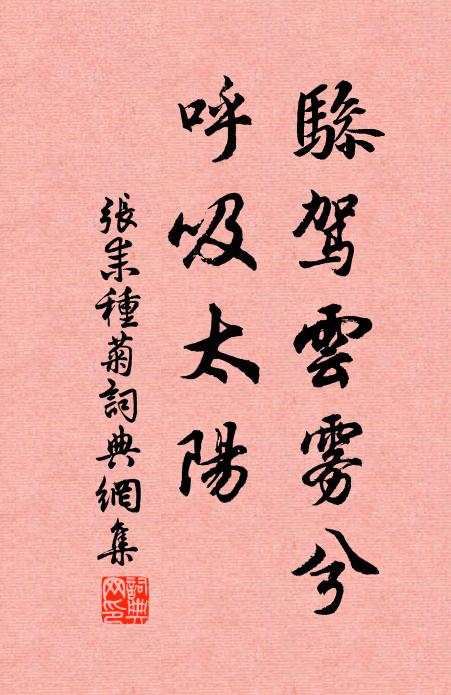 驂駕雲雾兮
呼吸太陽
張耒種菊詞典網集
詞典网印